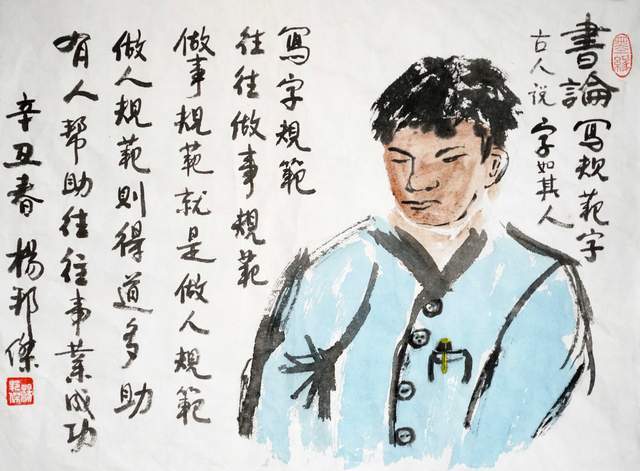 書論寫規範字
古人说字如其人
寫字規範
往往做事規範
做事規範就是做人規範
做人規範則得道多助
有人幫助往往事業成功
辛丑春楊邦傑